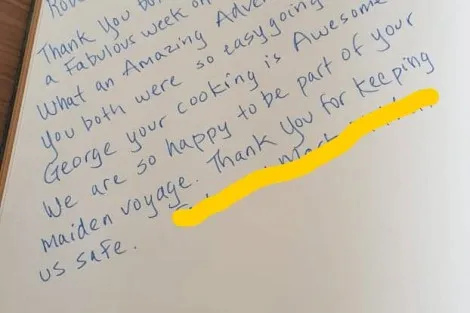 Thank You bo
a Fabulous week on
What an Amazing Adve
You both were so easygoing
George your cooking is Awesome
We are so happy to be part of your
maiden voyage. Thank You for keeping
us safe.